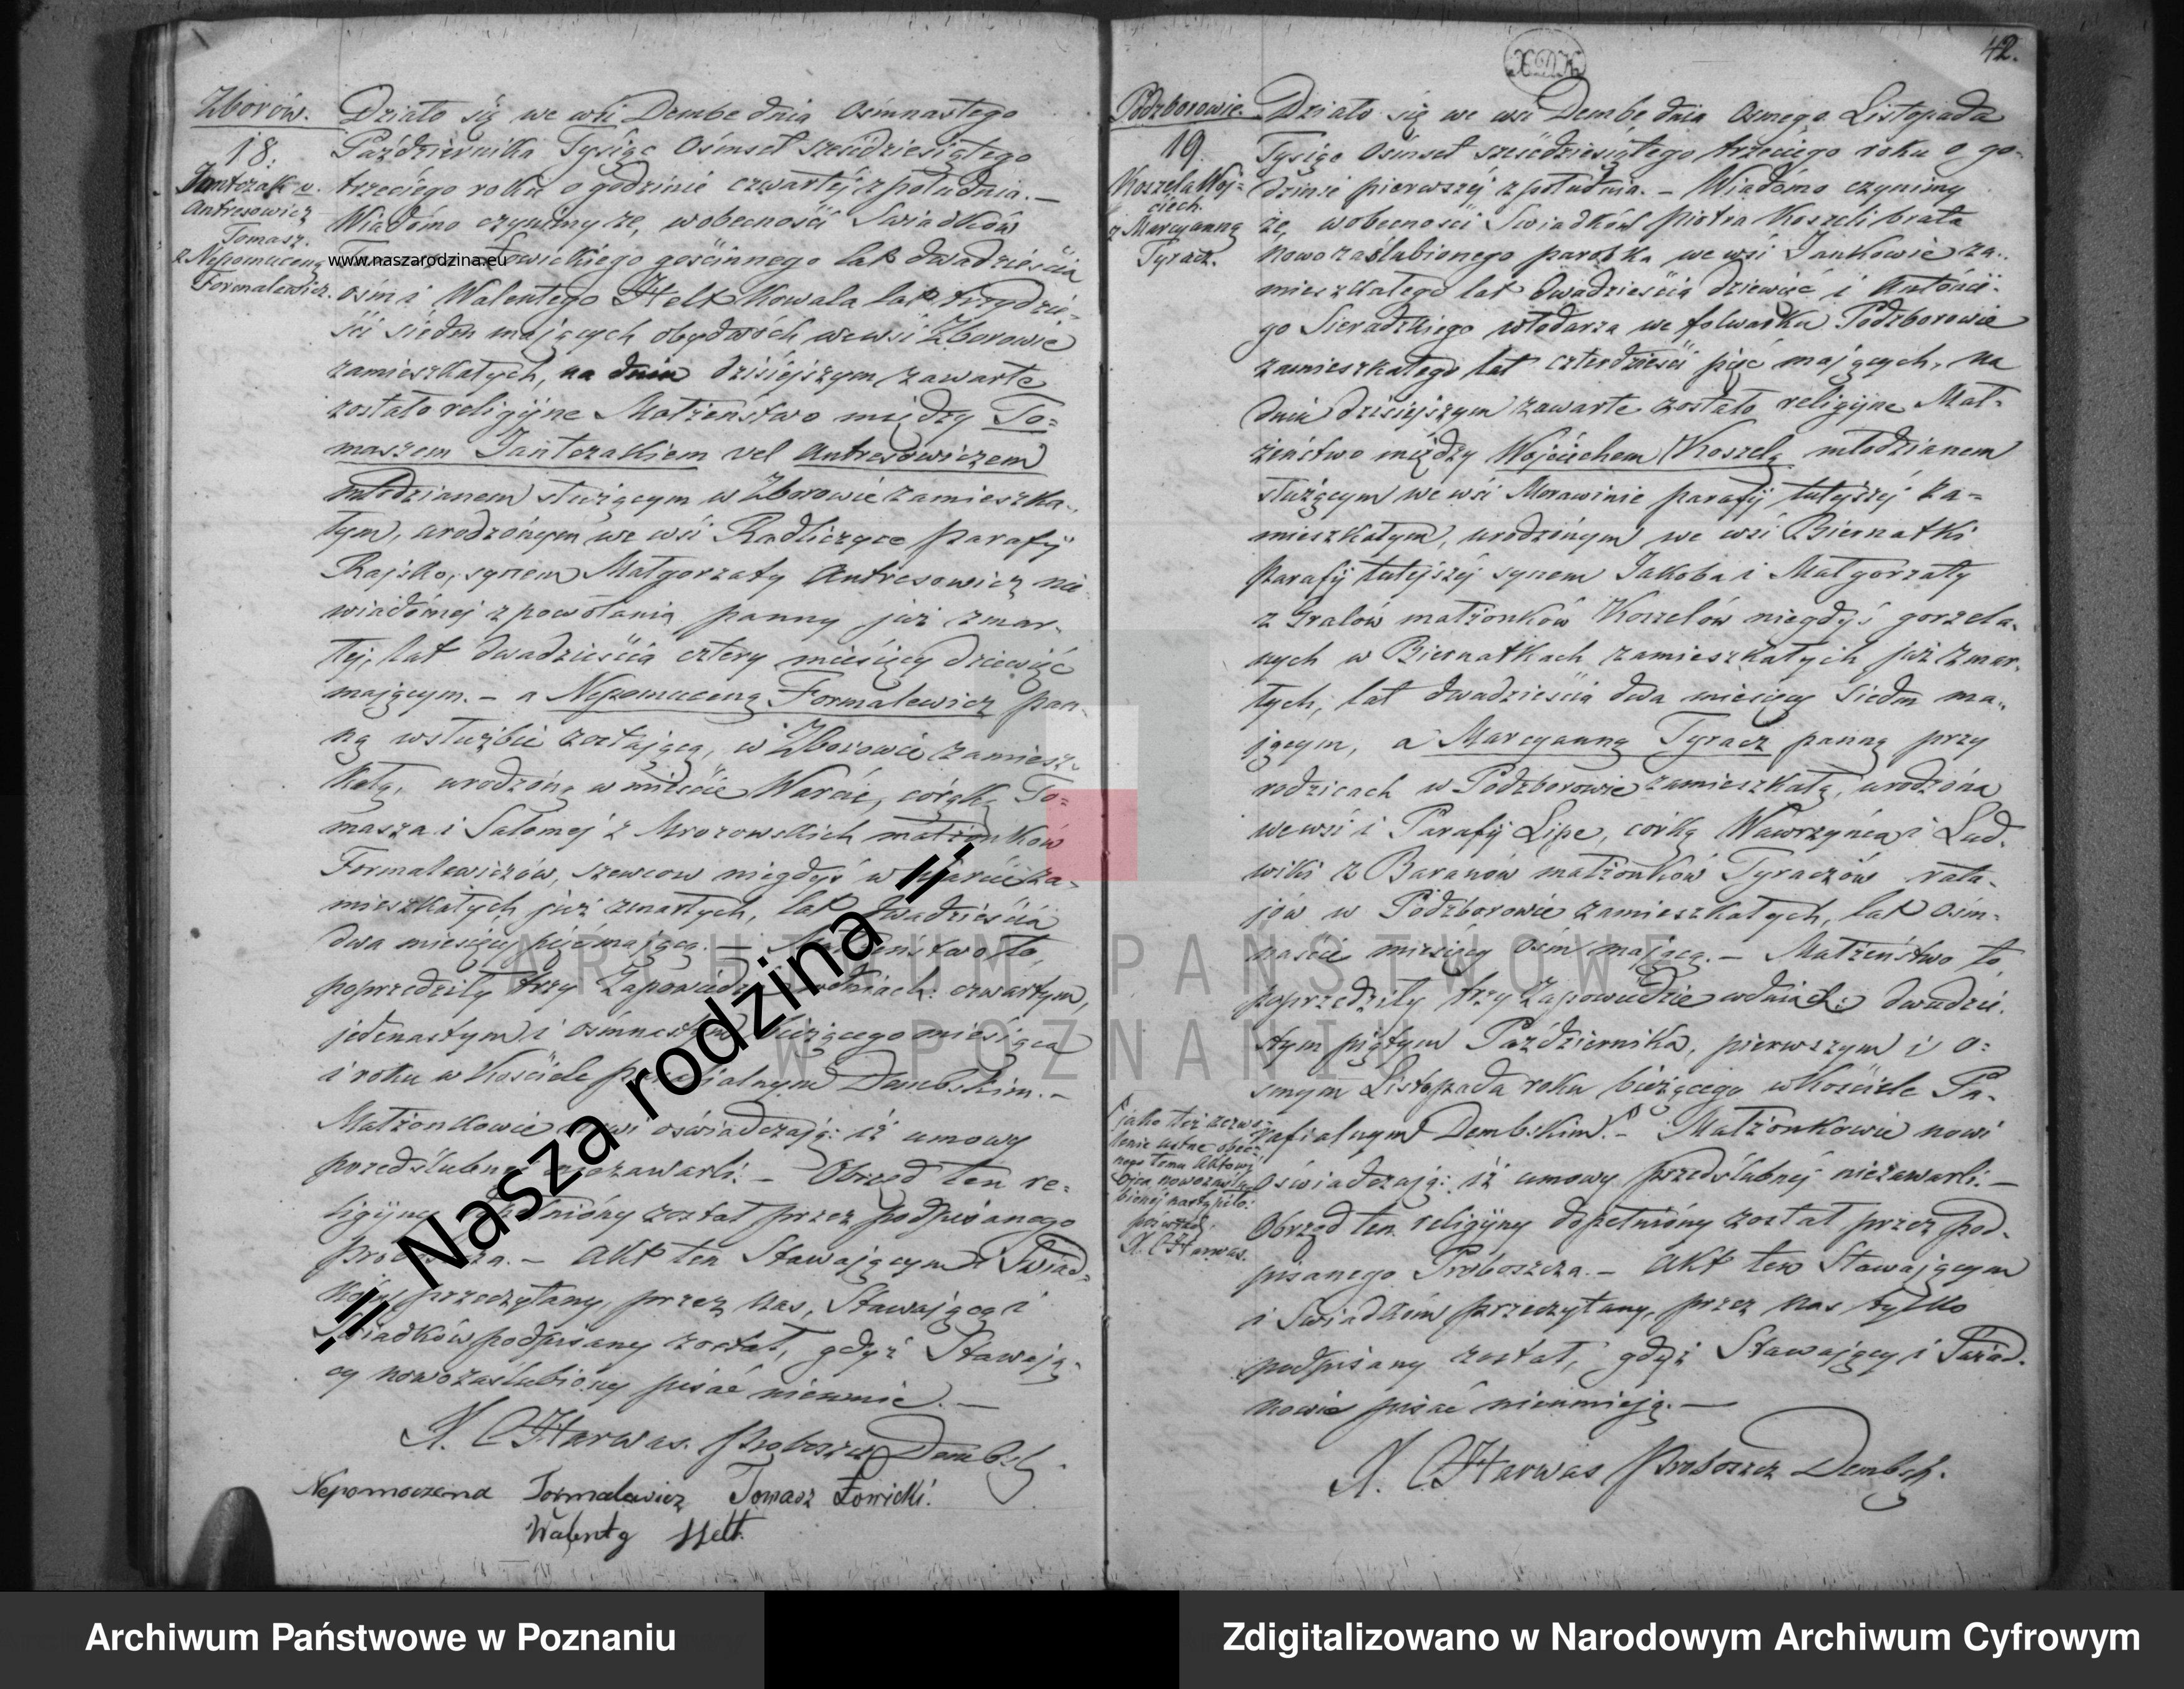 Zborów.
18.
Jantczak v.
Antresowicz
Tomasz.
z Nepomuceną
Formalewicz.
Działo się we wsi Dembe dnia Ośmnastego
Października Tysiąc Ośmset sześćdziesiątego
trzeciego roku o godzinie czwartéj z południa. —
Wiadomo czynimy że, w obecności Swiadków
Łowickiego gościnnego lat dwadzieścia
ośm i Walentego Helt Kowala lat trzydzie-
ści siedm mających obydwóch we wsi Zborowie
zamieszkałych, na dniu dzisiejszym zawarte
zostało religijne Małżeństwo między To-
maszem Jantczakiem vel Antresowiczem
młodzianem służącym w Zborowie zamieszka-
łym, urodzonym we wsi Radliczyce parafij
Rajsko, synem Małgorzaty Antresowicz nie
wiadomej z powołania panny już zmar-
łej, lat dwadzieścia cztery miesięcy dziewięć
mającym. — a Nepomuceną Formalewicz pan-
ną w służbie zostającą, w Zborowie zamiesz-
kałą, urodzoną w mieście Warcie, córąką To-
masza i Salomej z Mrozowskich małżonków
Formalewiczów, szewcow niegdyś w Warcie za-
mieszkałych już zmarłych, lat dwadzieścia
dwa miesięcy pięć mającą. — Małżeństwo to,
poprzedziły trzy Zapowiedzi w dniach: czwartym,
jedenastym i ośmnastym bieżącego miesiąca
i roku w Kościele parafialnym Dembskim. —
Małżonkowie nowi oświadczają: iż umowy
przedślubnej niezawarli. — Obrzęd ten re-
ligijny dopełniony został przez podpisanego
Proboszcza. — Akt ten Stawającym i Świad-
kom przeczytany, przez nas, Stawającą i
Swiadków podpisany został, gdyż Stawają-
cy nowozaślubiony pisać nieumie. —
X. C. Harwas. Proboszcz Dembsk.
Nepomoczena Formalewicz Tomasz Łowicki.
Walenty Helt.
42.
Podzborowie.
19.
Koszela Woj-
ciech.
z Marcyanną
Tyracz.
Działo się we wsi Dembe dnia Osmego Listopada
Tysiąc Ośmset sześćdziesiątego trzeciego roku o go-
dzinie pierwszéj z południa. — Wiadomo czynimy
że, w obecności Swiadków Piotra Koszeli brata
nowozaślubionego parobka we wsi Jankowie za-
mieszkałego lat dwadzieścia dziewięć i Antonie-
go Sieradzkiego włodarza we folwarku Podzborowie
zamieszkałego lat czterdzieści pięć mających, na
dniu dzisiejszym zawarte zostało religijne Mał-
żeństwo między Wojciechem Koszelą młodzianem
służącym we wsi Morawinie parafij tutejszéj za-
mieszkałym, urodzonym we wsi Biernatki
parafij tutejszéj synem Jakoba i Małgorzaty
z Gralów małżonków Koszelów niegdyś gorzela-
nych w Biernatkach zamieszkałych już zmar-
łych, lat dwadzieścia dwa miesięcy siedm ma-
jącym, a Marcyanną Tyracz panną przy
rodzicach w Podzborowie zamieszkałą, urodzoną
we wsi i Parafij Lipe, córką Wawrzyńca i Lud-
wiki z Baranów małżonków Tyraczów rata-
jów w Podzborowie zamieszkałych, lat ośm-
naście miesięcy ośm mającą. — Małżeństwo to
poprzedziły trzy Zapowiedzie w dniach: dwudzie-
stym piątym Października, pierwszym i o-
smym Listopada roku bieżącego w Kościele Pa-
rafialnym Dembskim. — Małżonkowie nowi
oświadczają: iż umowy przedślubnéj niezawarli. —
Obrzęd ten religijny dopełniony został przez pod-
pisanego Proboszcza. — Akt ten Stawającym
i Swiadkom przeczytany, przez nas tylko
podpisany został, gdyż Stawający i Swiad-
kowie pisać nieumieją. —
X. C. Harwas Proboszcz Dembsk.
jako też zezwo-
lenie ustne obec-
nego temu Aktowi
ojca nowozaślu-
bionéj nastąpiło.
X. C. Harwas.
www.naszarodzina.eu
=== Nasza rodzina ===
ARCHIWUM PAŃSTWOWE
W POZNANIU
Archiwum Państwowe w Poznaniu
Zdigitalizowano w Narodowym Archiwum Cyfrowym